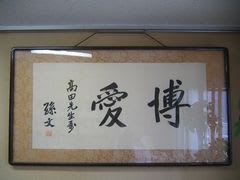 博愛
高田先生属
孫文